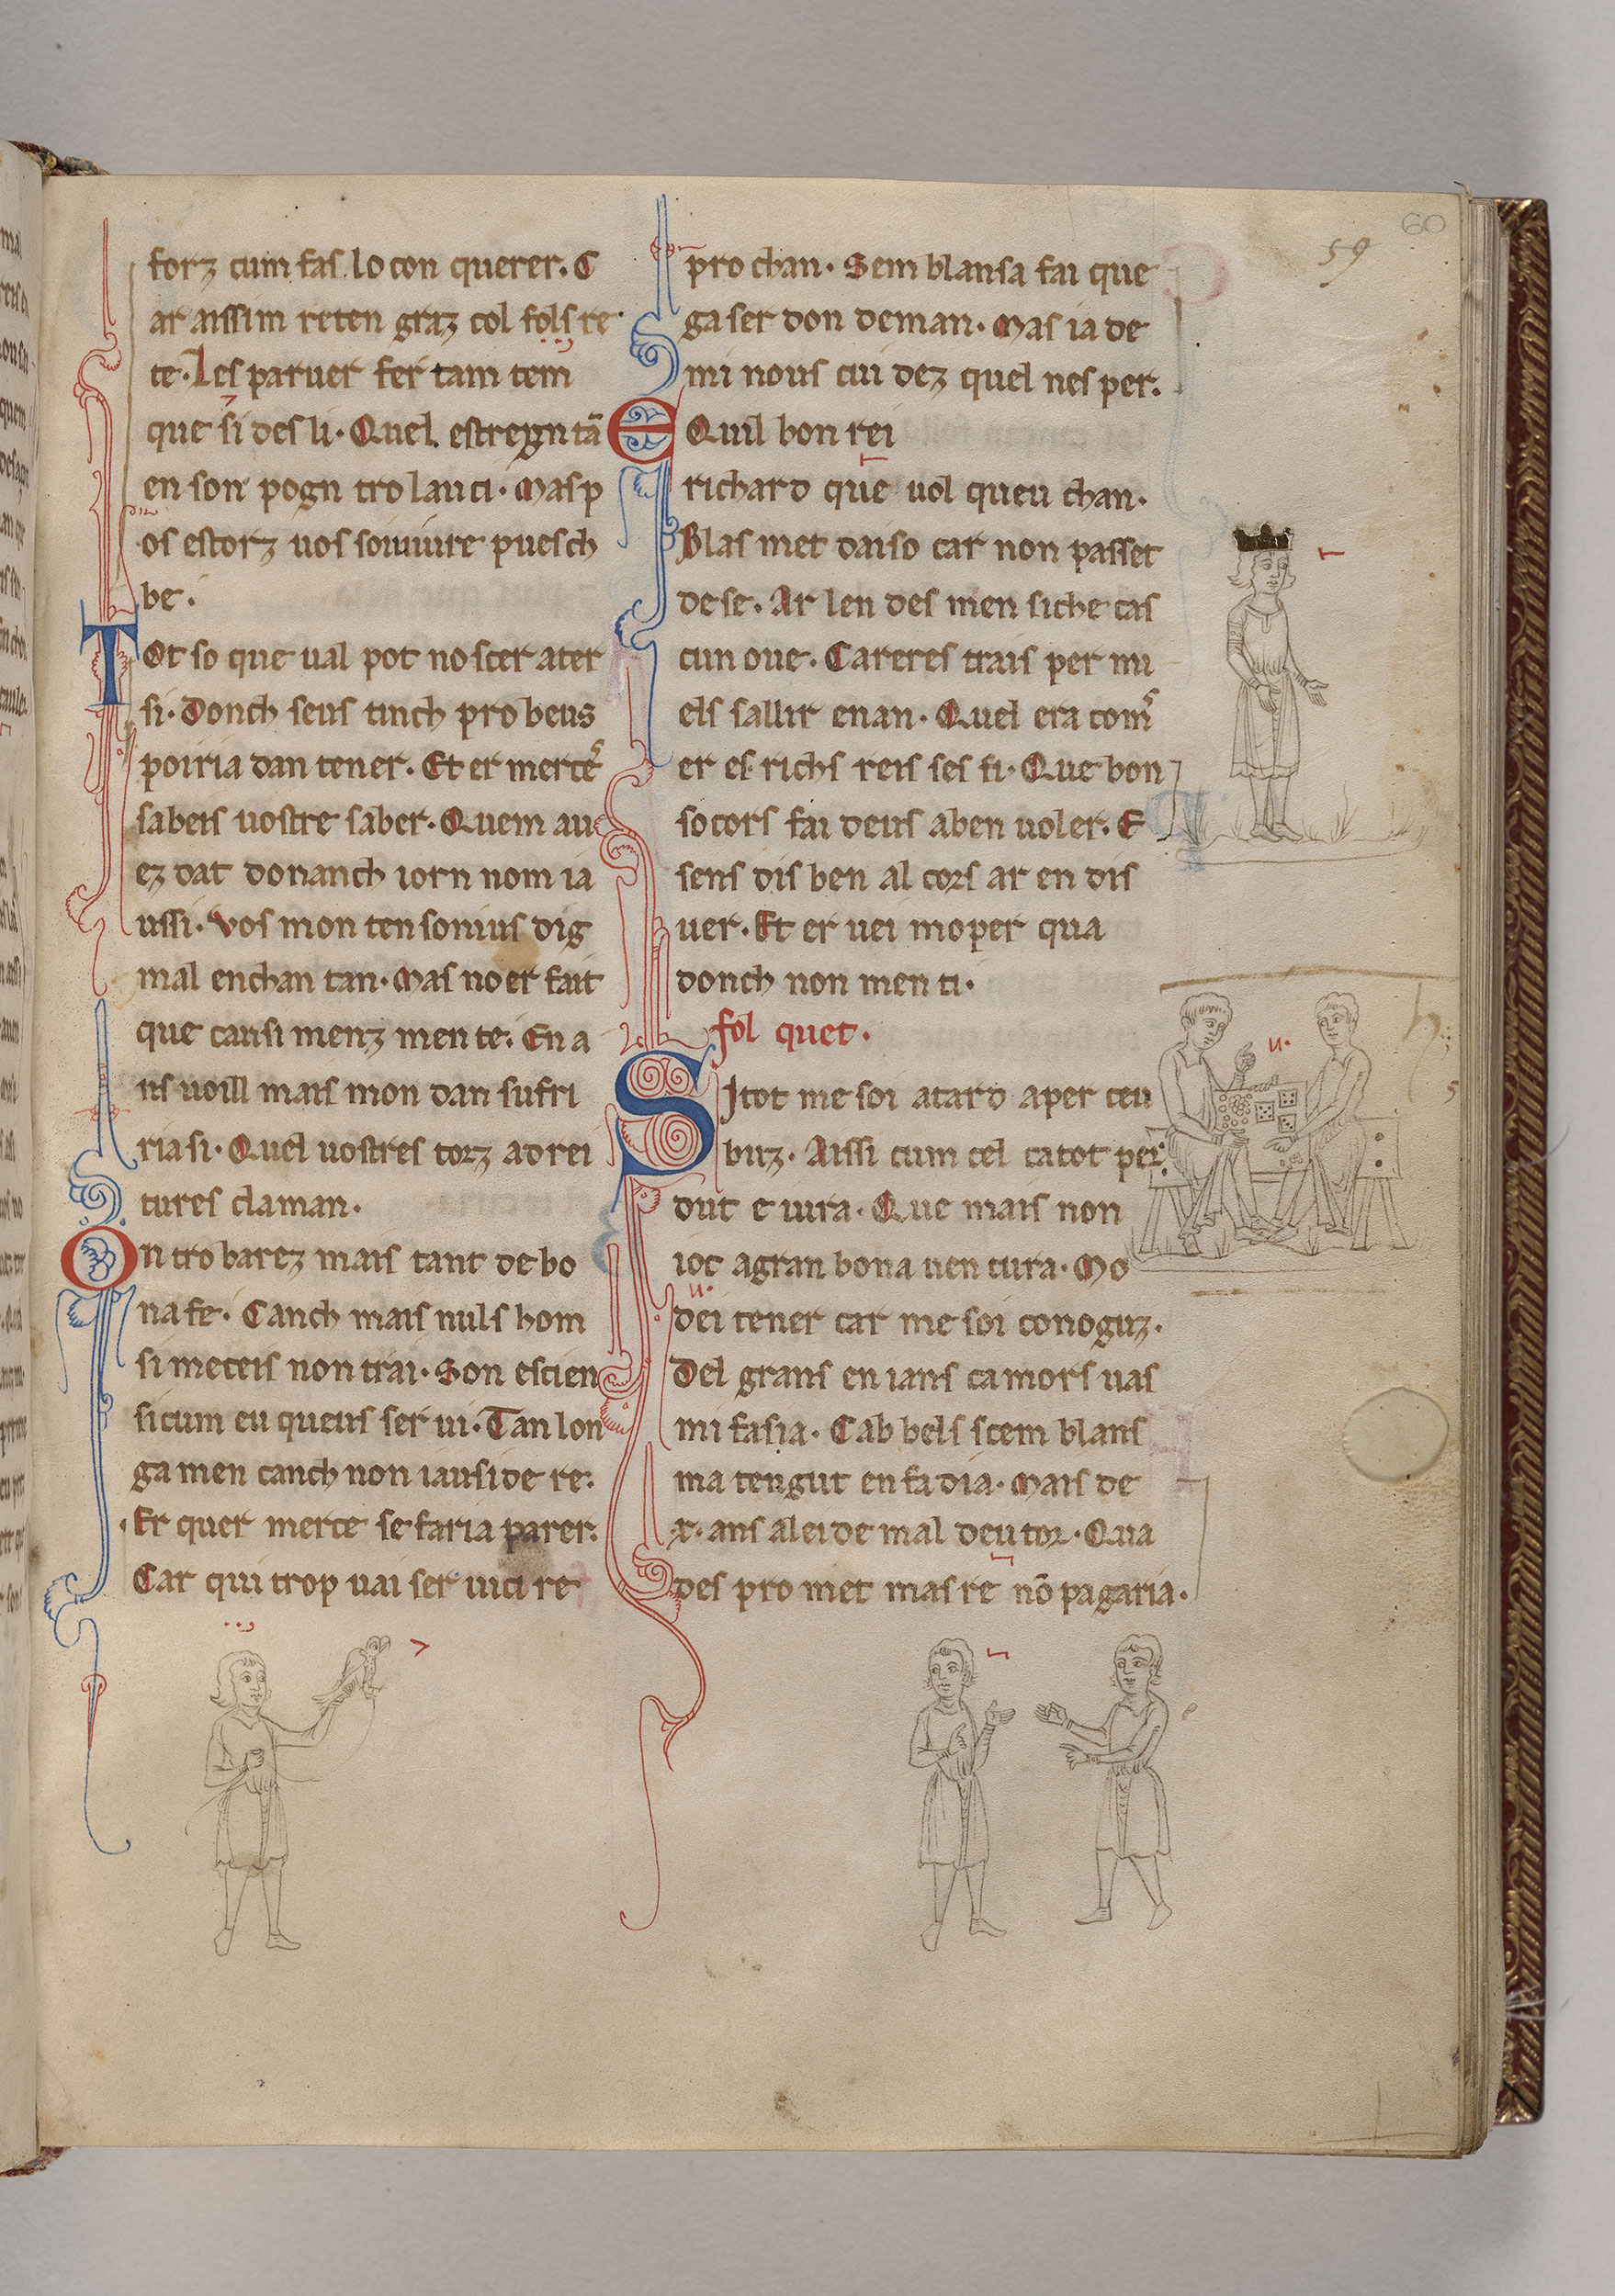 59
60
forz cum fas lo con querer. C
ar aissim reten graz col fols re
te. Les paruer fer tam tem
que si des li. Quel estregn tā
en son pogn tro lauci. Mas p
os estorz uos soi uiure puesch
be.
Tot so que ual pot noscer ater
si. Donch seus tinch pro beus
poiria dan tener. Et er merce s
sabeis uostre saber. Quem au
ez dat donanch iorn nom ia
ussi. Vos mon ten sonius dig
mal enchan tan. Mas no er fait
que causi menz men te. En a
us uoill mais mon dan sufri
ria si. Quel uostres torz a drei
tures claman.
On tro barez mais tant de bo
na fe. Canch mais nuls hom
si meteis non trai. Son escien
si cum eu queus ser ui. Tan lon
ga men canch non iausi de re.
Er quer merce se faria parer.
Car qui trop uai ser uici re
pro chan. Sem blansa fai que
ga ser don deman. Mas ia de
mi nous cui dez quel nes per.
E Quil bon rei
richard que uol queu chan.
Blas met daiso car non passet
de se. Ar len des men si che cas
cun oue. Car eres trais per mi
els sallir enan. Quel era com s
er es richs reis ses fi. Que bon
socors fai deus aben uoler. E
sens dis ben al cors ar en dis
uer. Et er uei mo per qua
donch non men ti.
fol quet.
SItot me soi atard aper ceu
buz. Aissi cum cel ca tot per
dut e iura. Que mais non
ioc agran bona uen tura. Mo
dei tener car me soi conoguz.
Del grans en ians camors uas
mi fasia. Cab bels scem blans
ma tengut en fa dia. Mais de
.x. ans a lei de mal deu tor. Qua
des pro met mas re nō pagaria.